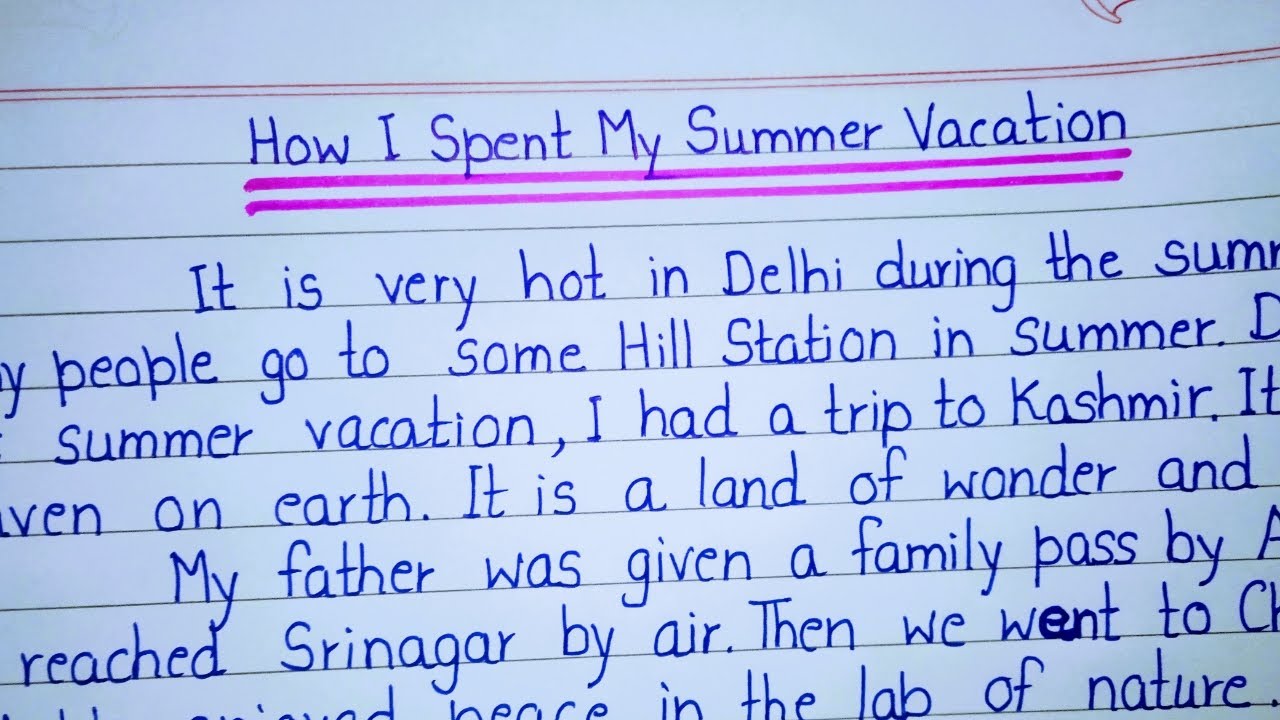 How I Spent My Summer Vacation
It is very hot in Delhi during the summ
y people go to some Hill Station in summer. D
summer vacation, I had a trip to Kashmir. It
ven on earth. It is a land of wonder and
My father was given a family pass by A
reached Srinagar by air. Then we went to Ch
enjoyed peace in the lab of nature.